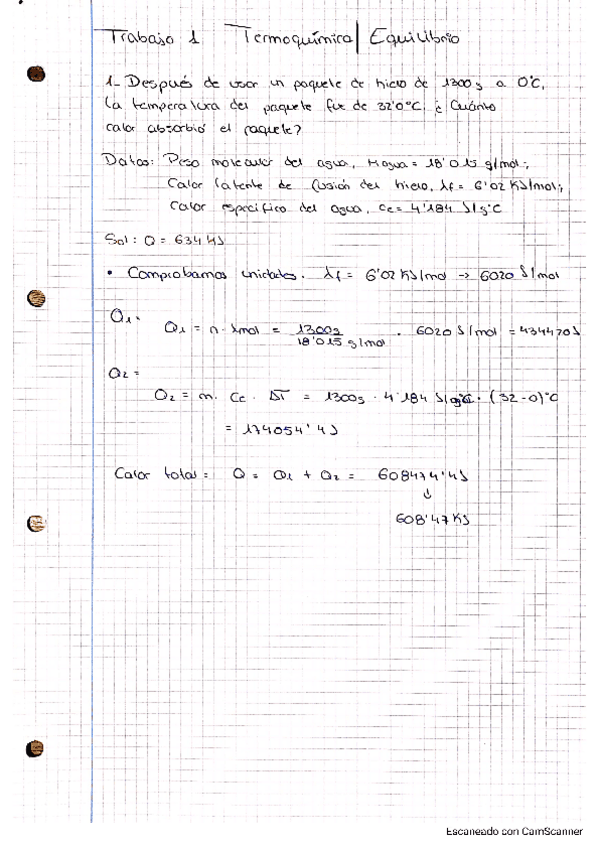 Trabajo 1 Termoquímica | Equilibrio
1- Después de usar un paquete de hielo de 1300g a 0°C,
la temperatura del paquete fue de 32'0°C, ¿Cuánto
calor absorbió el paquete?
Datos: Peso molecular del agua, Magua = 18'015 g/mol;
Calor latente de fusión del hielo, λf = 6'02 KJ/mol;
Calor específico del agua, ce = 4'184 J/g°C
Sol: Q = 634 KJ
• Comprobamos unidades. λf = 6'02 KJ/mol -> 6020 J/mol
Q1 =
Q1 = n · λmol = 1300g / 18'015 g/mol · 6020 J/mol = 434470J
Q2 =
Q2 = m · Ce · ΔT = 1300g · 4'184 J/g°C · (32-0)°C
= 174054'4J
Calor total = Q = Q1 + Q2 = 608474'4J
↓
608'47 KJ
Escaneado con CamScanner